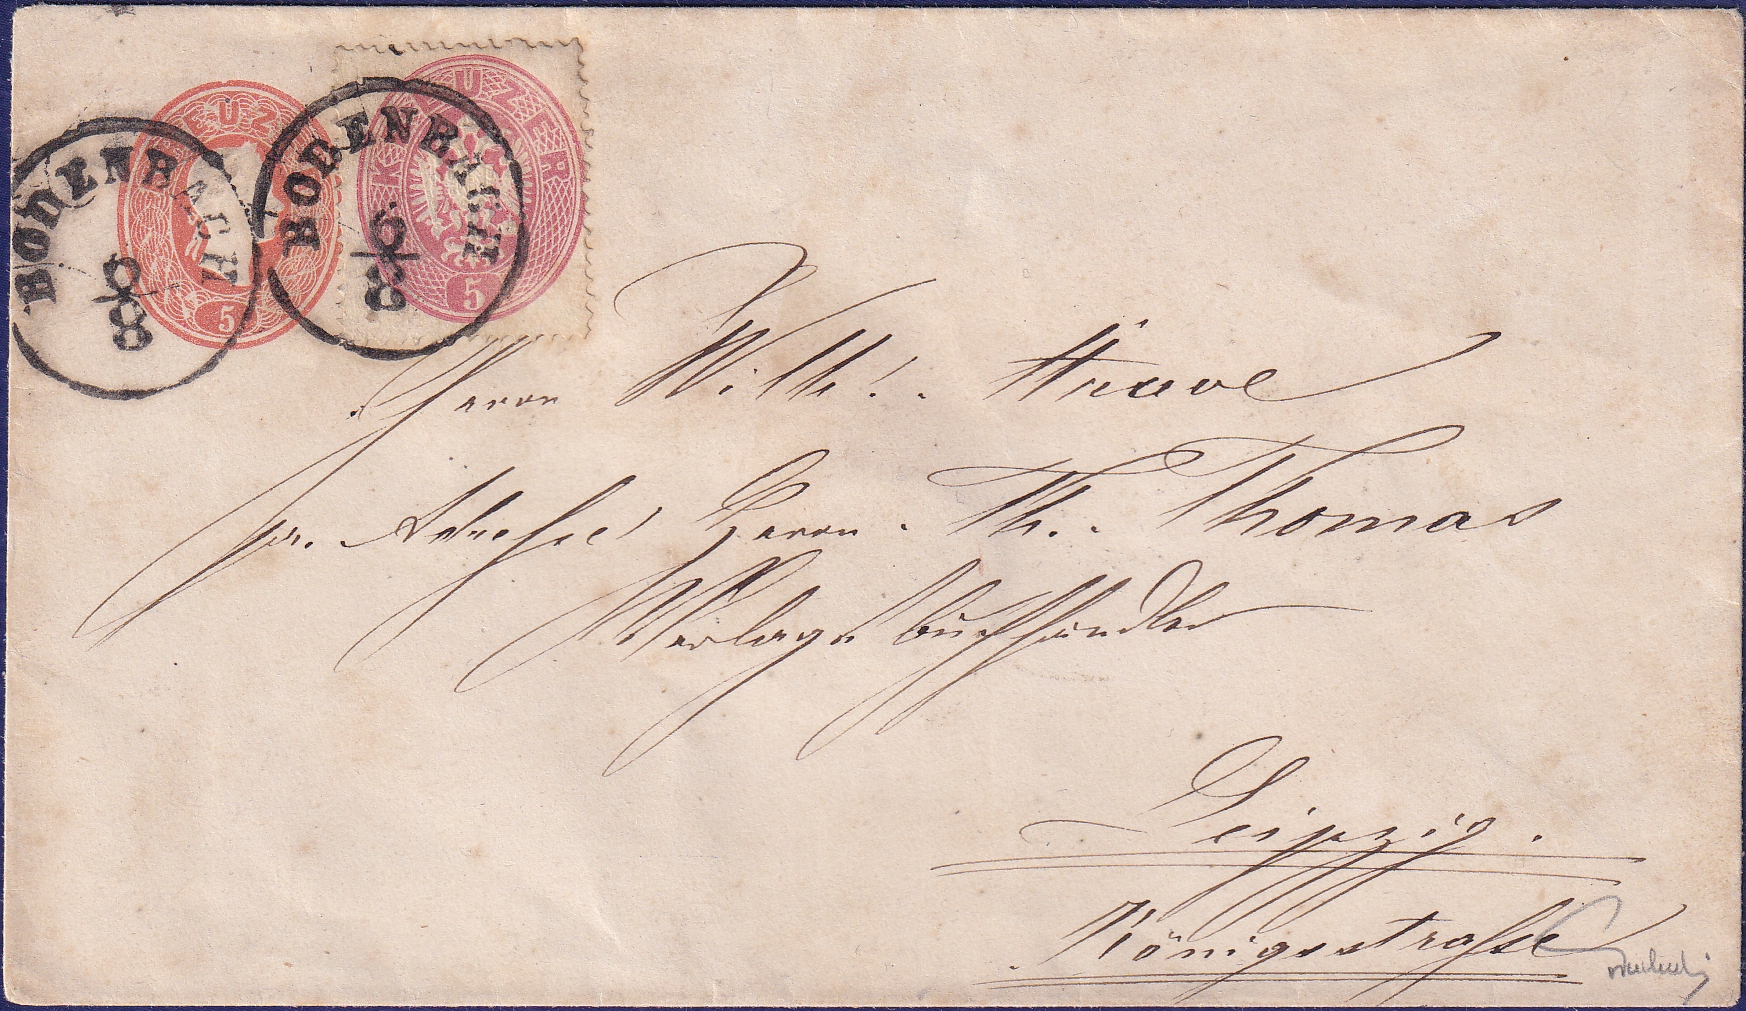 KREUZER
5
KREUZER
5
BODENBACH
6/8
BODENBACH
6/8
Herrn Wilh. Struve
pr. Adresse Herrn Th. Thomas
Verlagsbuchhändler
Leipzig.
Königsstraße